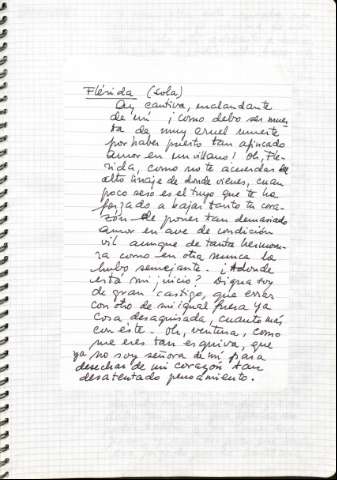 Flérida (sola)
Ay cautiva, malandante
de mí ¡como debo ser muer-
ta de muy cruel muerte
por haber puesto tan afincado
amor en un villano! Oh, Flé-
rida, como no te acuerdas del
alto linaje de donde vienes, cuan
poco seso es el tuyo que te ha
forzado a bajar tanto tu cora-
zón de poner tan demasiado
amor en ave de condición
vil aunque de tanta hermosu-
ra como en otra nunca la
hubo semejante. ¿Adonde
está mi juicio? Digna soy
de gran castigo, que errar
con otro de mi igual fuera ya
cosa desaguisada, cuanto más
con éste. Oh, ventura, como
me eres tan esquiva, que
ya no soy señora de mí para
desechar de mi corazón tan
desatentado pensamiento.